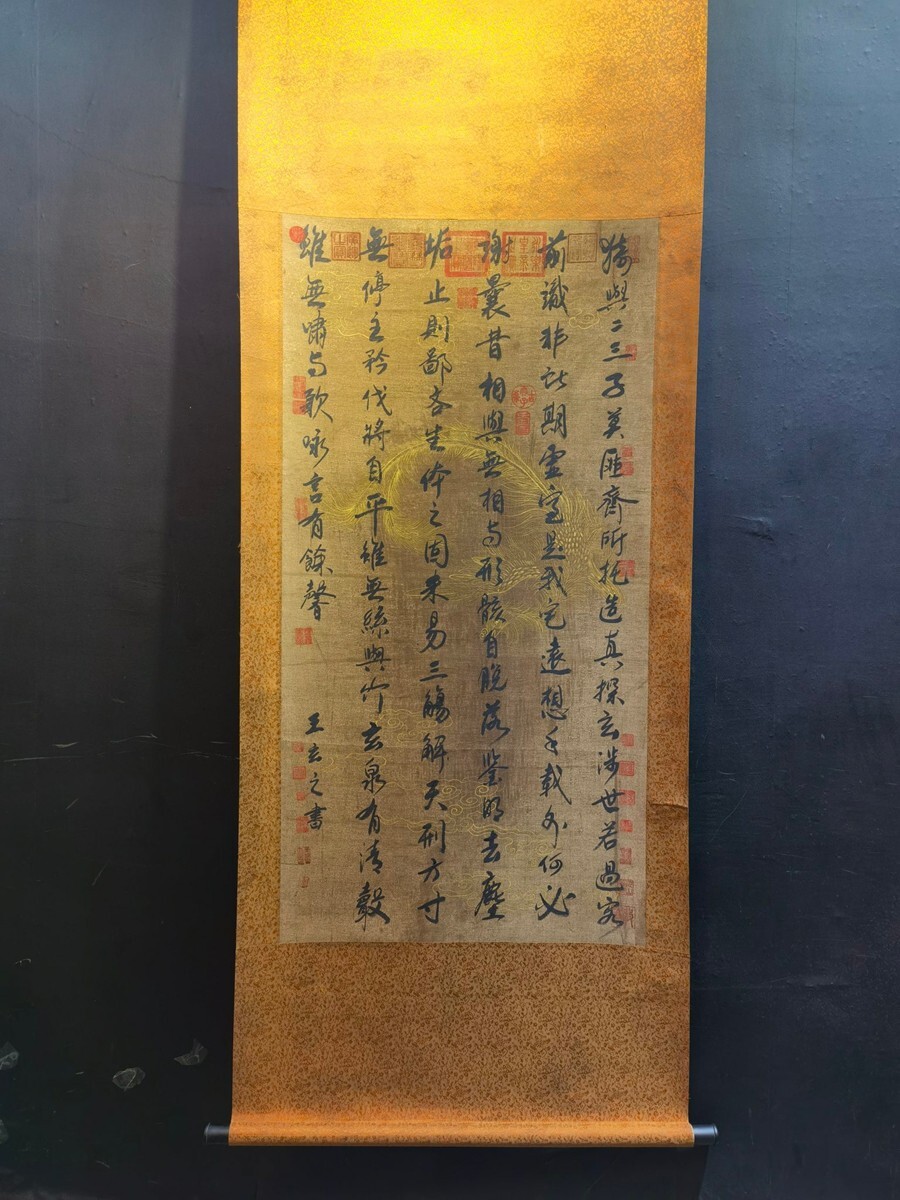 猗與二三子莫匪齊所托造真探玄涉世若過客
前識非所期虛室是我宅遠想千載外何必
謝曩昔相與無相与形骸自脫落鑒明去塵
垢止則鄙吝生体之固未易三觴解天刑方寸
無停主矜伐將自平雖無絲與竹玄泉有清聲
雖無嘯与歌咏言有餘馨
王玄之書